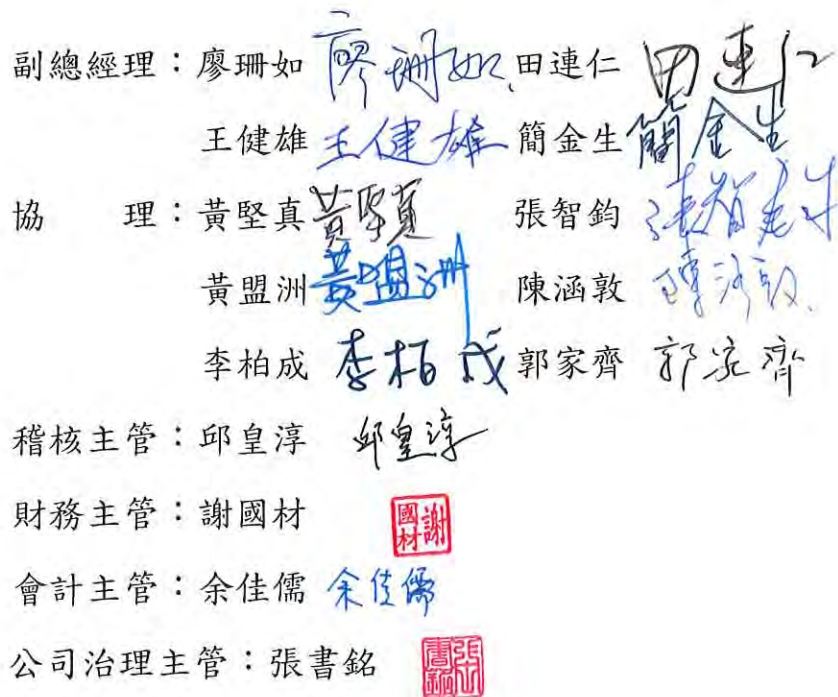 副總經理：廖珊如 廖珊如 田連仁 田連仁
王健雄 王健雄 簡金生 簡金生
協　　理：黃堅真 黃堅真 張智鈞 張智鈞
黃盟洲 黃盟洲 陳涵敦 陳涵敦
李柏成 李柏成 郭家齊 郭家齊
稽核主管：邱皇淳 邱皇淳
財務主管：謝國材 謝國材
會計主管：余佳儒 余佳儒
公司治理主管：張書銘 張書銘